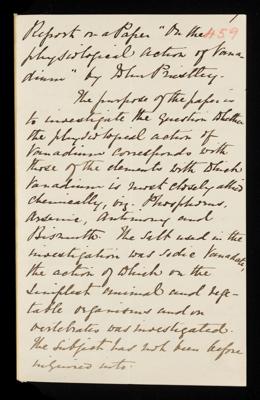 Report on a Paper "On the 459
physiological action of Vana-
dium" by John Priestley.
The purpose of the paper is
to investigate the question whether
the physiological action of
Vanadium corresponds with
those of the elements with which
Vanadium is most closely allied
chemically, viz. Phosphorus,
Arsenic, Antimony and
Bismuth. The salt used in the
investigation was sodic Vanadate,
the action of which on the
simplest animal and vege-
table organisms and on
vertebrates was investigated.
The subject has not been before
inquired into.